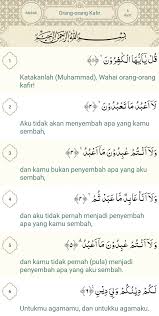 Orang-orang Kafir
بِسْمِ اللَّهِ الرَّحْمَٰنِ الرَّحِيمِ
1
قُلْ يَا أَيُّهَا الْكَافِرُونَ ۙ﴿١﴾
Katakanlah (Muhammad), Wahai orang-orang
kafir!
2
لَا أَعْبُدُ مَا تَعْبُدُونَ ۙ﴿٢﴾
Aku tidak akan menyembah apa yang kamu
sembah,
3
وَلَا أَنْتُمْ عَابِدُونَ مَا أَعْبُدُ ۚ﴿٣﴾
dan kamu bukan penyembah apa yang aku
sembah,
4
وَلَا أَنَا عَابِدٌ مَا عَبَدْتُمْ ۙ﴿٤﴾
dan aku tidak pernah menjadi penyembah
apa yang kamu sembah,
5
وَلَا أَنْتُمْ عَابِدُونَ مَا أَعْبُدُ ۗ﴿٥﴾
dan kamu tidak pernah (pula) menjadi
penyembah apa yang aku sembah.
6
لَكُمْ دِينُكُمْ وَلِيَ دِينِ ﴿٦﴾
Untukmu agamamu, dan untukku agamaku.